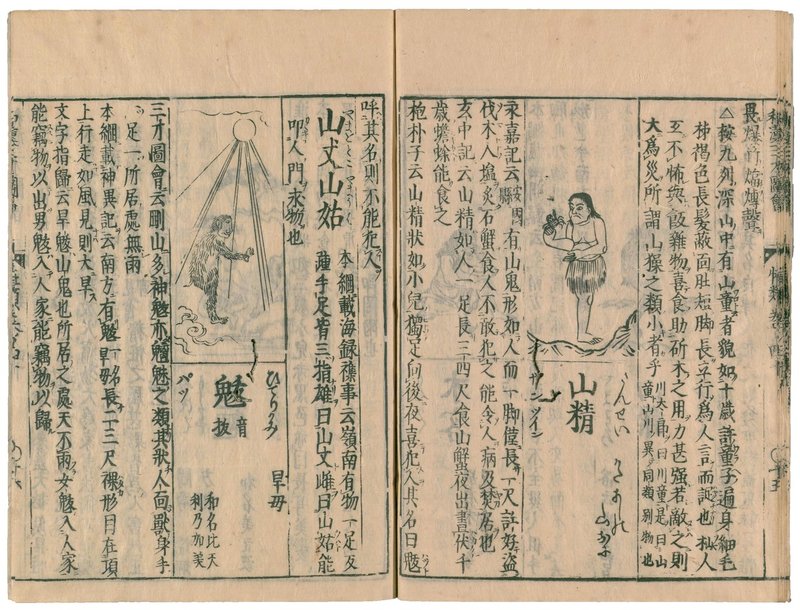 畏爆竹煏熚聲
△按九州深山中有山童者貌如十歳許童子遍身細毛
柹褐色長髮蔽面肚短脚長立行爲人言而𧦧也杣人
互不怖與飯雜物喜食助斫木之用力甚强若敵之則
大爲災所謂山𤢖之類小者乎
川太郎曰川童是曰山
童山川異同類别物也
山精
さんせい
サンツイン
永嘉記云安國縣有山鬼形如人而一脚僅長一尺許好盗
伐木人塩炙石蟹食人不敢犯之能令人病及焚居也
玄中記云山精如人一足長三四尺食山蟹夜出晝伏千
歳蟾蜍能食之
抱朴子云山精狀如小兒獨足向後夜喜犯人其名曰魃
呼其名則不能犯人
山丈山姑
本綱載海録雜事云嶺南有物一足反
踵手足皆三指雄曰山丈雌曰山姑能
叩人門求物也
魃
音
抜
ひでりかみ
パツ
旱母
和名比天
利乃加美
三才圖會云剛山多神魃亦魑魅之類其狀人面獸身手
足一所居處無雨
本綱載神異記云南方有魃一名旱母長二三尺裸形目在頂
上行走如風見則大旱
文字指歸云旱魃山鬼也所居之處天不雨女魃入人家
能竊物以出男魃入人家能竊物以歸